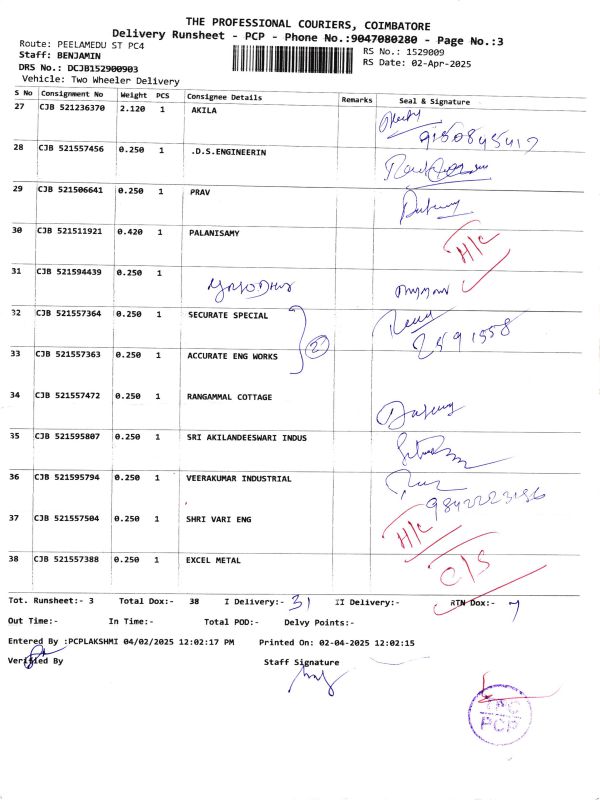 THE PROFESSIONAL COURIERS, COIMBATORE
Delivery Runsheet - PCP - Phone No.:9047080280 - Page No.:3
Route: PEELAMEDU ST PC4
RS No.: 1529009
Staff: BENJAMIN
RS Date: 02-Apr-2025
DRS No.: DCJB152900903
Vehicle: Two Wheeler Delivery
S No Consignment No Weight PCS Consignee Details Remarks Seal & Signature
27 CJB 521236370 2.120 1 AKILA
9150845417
28 CJB 521557456 0.250 1 .D.S.ENGINEERIN
29 CJB 521506641 0.250 1 PRAV
30 CJB 521511921 0.420 1 PALANISAMY
H/C
31 CJB 521594439 0.250 1
32 CJB 521557364 0.250 1 SECURATE SPECIAL
2591558
2
33 CJB 521557363 0.250 1 ACCURATE ENG WORKS
34 CJB 521557472 0.250 1 RANGAMMAL COTTAGE
35 CJB 521595807 0.250 1 SRI AKILANDEESWARI INDUS
36 CJB 521595794 0.250 1 VEERAKUMAR INDUSTRIAL
37 CJB 521557504 0.250 1 SHRI VARI ENG
H/C
38 CJB 521557388 0.250 1 EXCEL METAL
C/S
Tot. Runsheet:- 3 Total Dox:- 38 I Delivery:- 31 II Delivery:- RTN Dox:- 7
Out Time:- In Time:- Total POD:- Delvy Points:-
Entered By :PCPLAKSHMI 04/02/2025 12:02:17 PM Printed On: 02-04-2025 12:02:15
Verified By Staff Signature
PCP